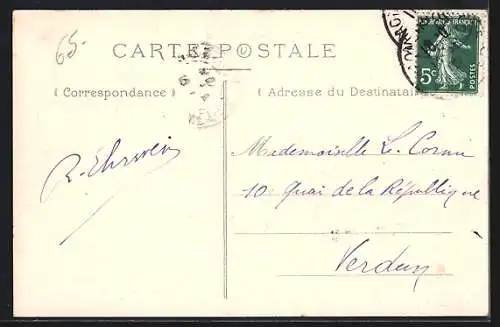 65-
CARTE POSTALE
RÉPUBLIQUE FRANÇAISE
5c
POSTES
( Correspondance )
( Adresse du Destinataire
Mademoiselle L.
10 Quai de la République
Verdun